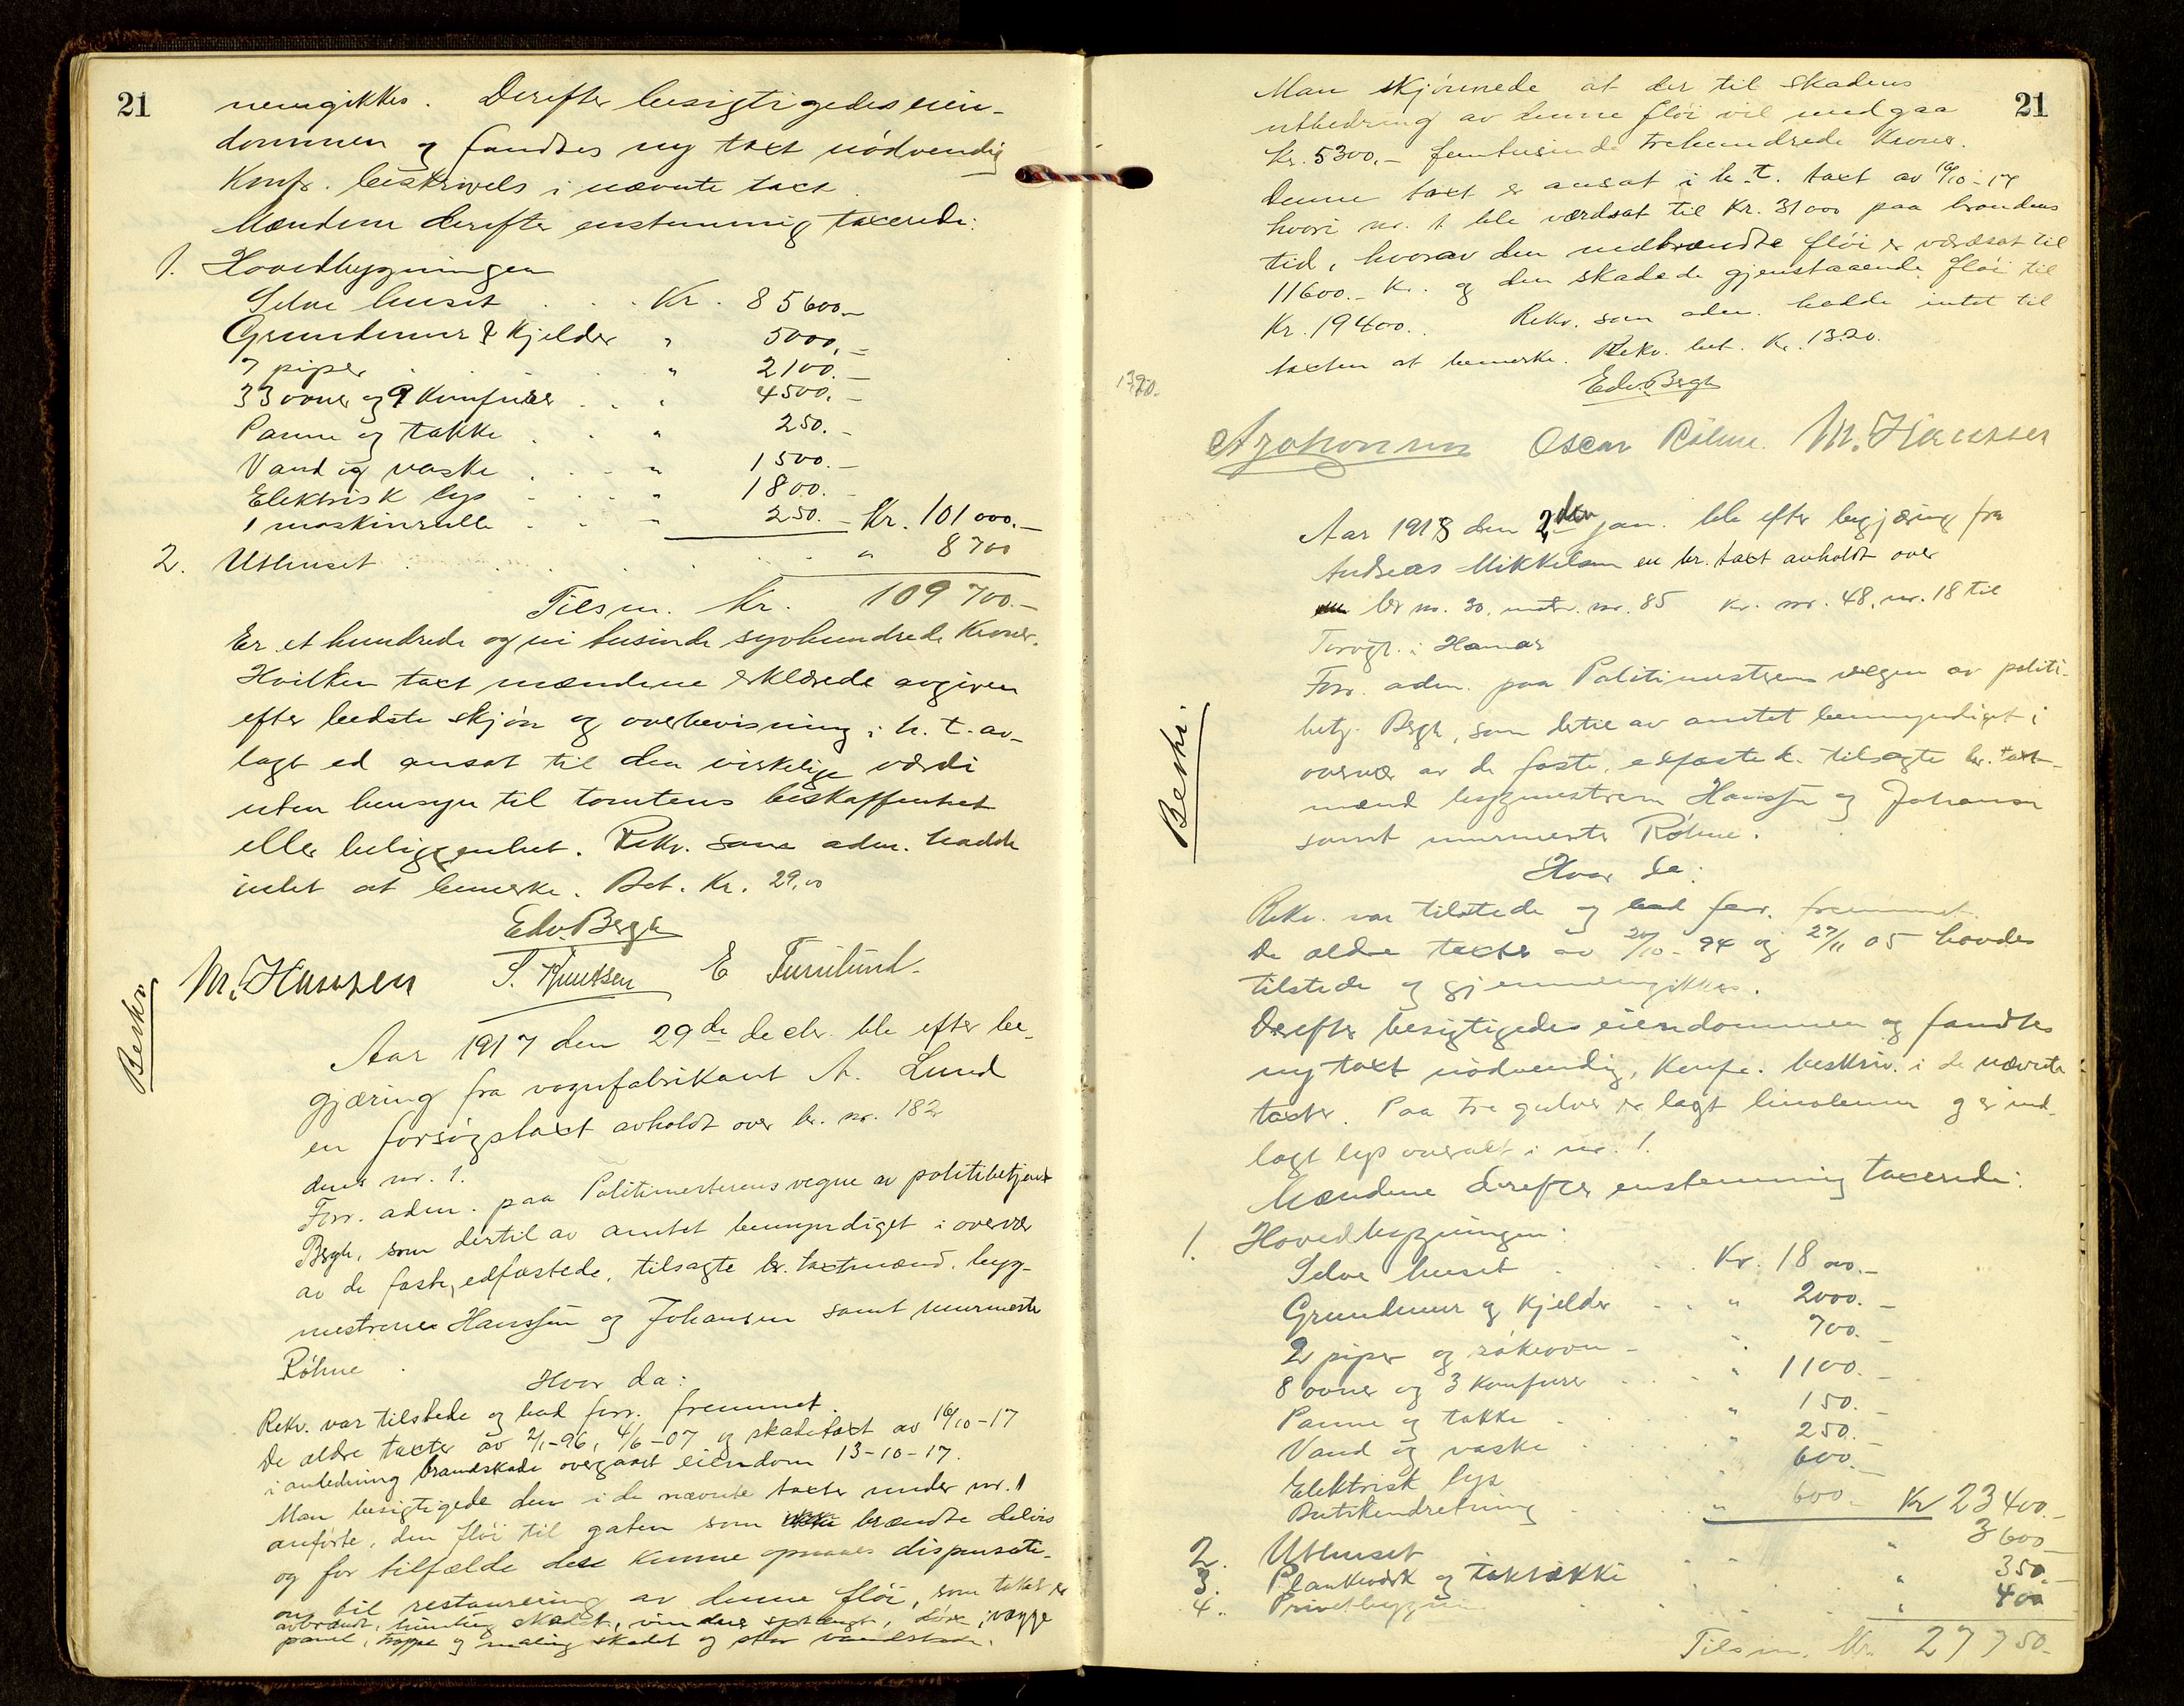 21
nemgikkes. Derefter besigtigedes eien-
dommen og fandtes ny taxt nödvendig
Konfr. beskrivels i nævnte taxt.
Mændene derefter enstemmig taxerede:
1. Hovedbygningen
Selve huset . . . Kr. 85600.-
Grundmur & Kjelder " 5000.-
7 piper . . . " 2100.-
33 ovner og 9 Komfurer . . " 4500.-
Panne og takke . . " 250.-
Vand og vaske . . . " 1500.-
Elektrisk lys . . . " 1800.-
1 maskinrulle . . . " 250.- Kr. 101000.-
2. Uthuset . . . . . " 8700
Tilsm. Kr. 109700.-
Er et hundrede og ni tusinde syvhundrede Kroner.
Hvilken taxt mændene erklærede avgiven
efter bedste skjøn og overbevisning i h. t. av-
lagt ed ansat til den virkelige værdi
uten hensyn til tomtens beskaffenhet
eller beliggenhet. Rekv. som adm. hadde
intet at bemerke. Bet. Kr. 29,00
Edv. Bergh
M. Hanssen S. Knutsen E Furulund.
Beskr.
Aar 1917 den 29de decbr. ble efter be-
gjæring fra vognfabrikant A. Lund
en forsøgstaxt avholdt over br. nr. 182
dens nr. 1.
Forr. adm. paa Politimesterens vegne av politibetjent
Bergh, som dertil av amtet bemyndiget i overvær
av de faste, edfæstede, tilsagte br. taxtmænd, byg-
mestrene Hanssen og Johansen samt murmester
Röhne.
Hvor da:
Rekv. var tilstede og bad forr. fremmet.
De ældre taxter av 2/1-96, 4/6-07 og skadetaxt av 16/10-17
i anledning brandskade overgaaet eiendom 13-10-17.
Man besigtigede den i de nævnte taxter under nr. 1
anførte, den fløi til gaten som brændte delvis
og for tilfælde det kunne opnaaes dispensati-
on til restaurering av denne fløi, som taket er
avbrændt, himling skadet, vinduer sprængt, döre, vægge
panel, trappe og maling skadet og stor vandskade.
21
Man skjønnede at der til skadens
utbedring av denne fløi vil medgaa
Kr. 5300.- femtusinde trehundrede Kroner.
Denne taxt er ansat i h. t. taxt av 16/10-17
hvori nr. 1 ble værdsat til Kr. 31000 paa brandens
tid, hvorav den nedbrændte fløi er værdsat til
11600.- Kr. og den skadede gjenstaaende fløi til
Kr. 19400.. Rekv. som adm. hadde intet til
taxten at bemerke. Rekv. bet. Kr. 13.20.
13.20.
Edv. Bergh
A Johansen Oscar Röhne. M. Hanssen
Beskr.
Aar 1918 den 2den jan. ble efter begjæring fra
Andreas Mikkelsen en br. taxt avholdt over
br nr. 30, matr. nr. 85 Kv. nr. 48, nr. 18 til
Torvgt. i Hamar
Forr. adm. paa Politimesterens vegne av politi-
betj. Bergh, som dertil av amtet bemyndiget i
overvær av de faste, edfæstede tilsagte br. taxt-
mænd bygmestrene Hanssen og Johansen
samt murmester Röhne.
Hvor da:
Rekv. var tilstede og bad forr. fremmet.
De ældre taxter av 20/10-94 og 27/11 05 havdes
tilstede og gjennemgikkes.
Derefter besigtigedes eiendommen og fandtes
ny taxt nødvendig, Konfr. beskriv. i de nævnte
taxter. Paa tre gulver er lagt linoleum og er ind-
lagt lys overalt i nr. 1.
Mændene derefter enstemmig taxerede:
1. Hovedbygningen:
Selve huset . . . Kr. 18000.-
Grundmur og Kjelder . . " 2000.-
2 piper og rökeovn - " 700.-
8 ovner og 3 Komfurer . . " 1100.-
Panne og takke . . " 150.-
Vand og vaske . . " 250.-
Elektrisk lys . . " 600.-
Butikindretning . . " 600.- Kr 23400.-
2. Uthuset . . . " 3600
3. Plankeværk og taktække . . " 350.-
4. Privetbygning . . " 400
Tilsm. Kr. 27750.-